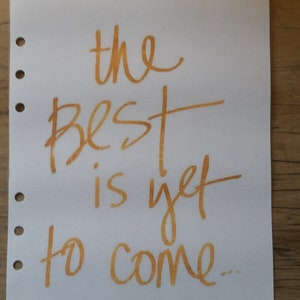 the
Best
is yet
to come...